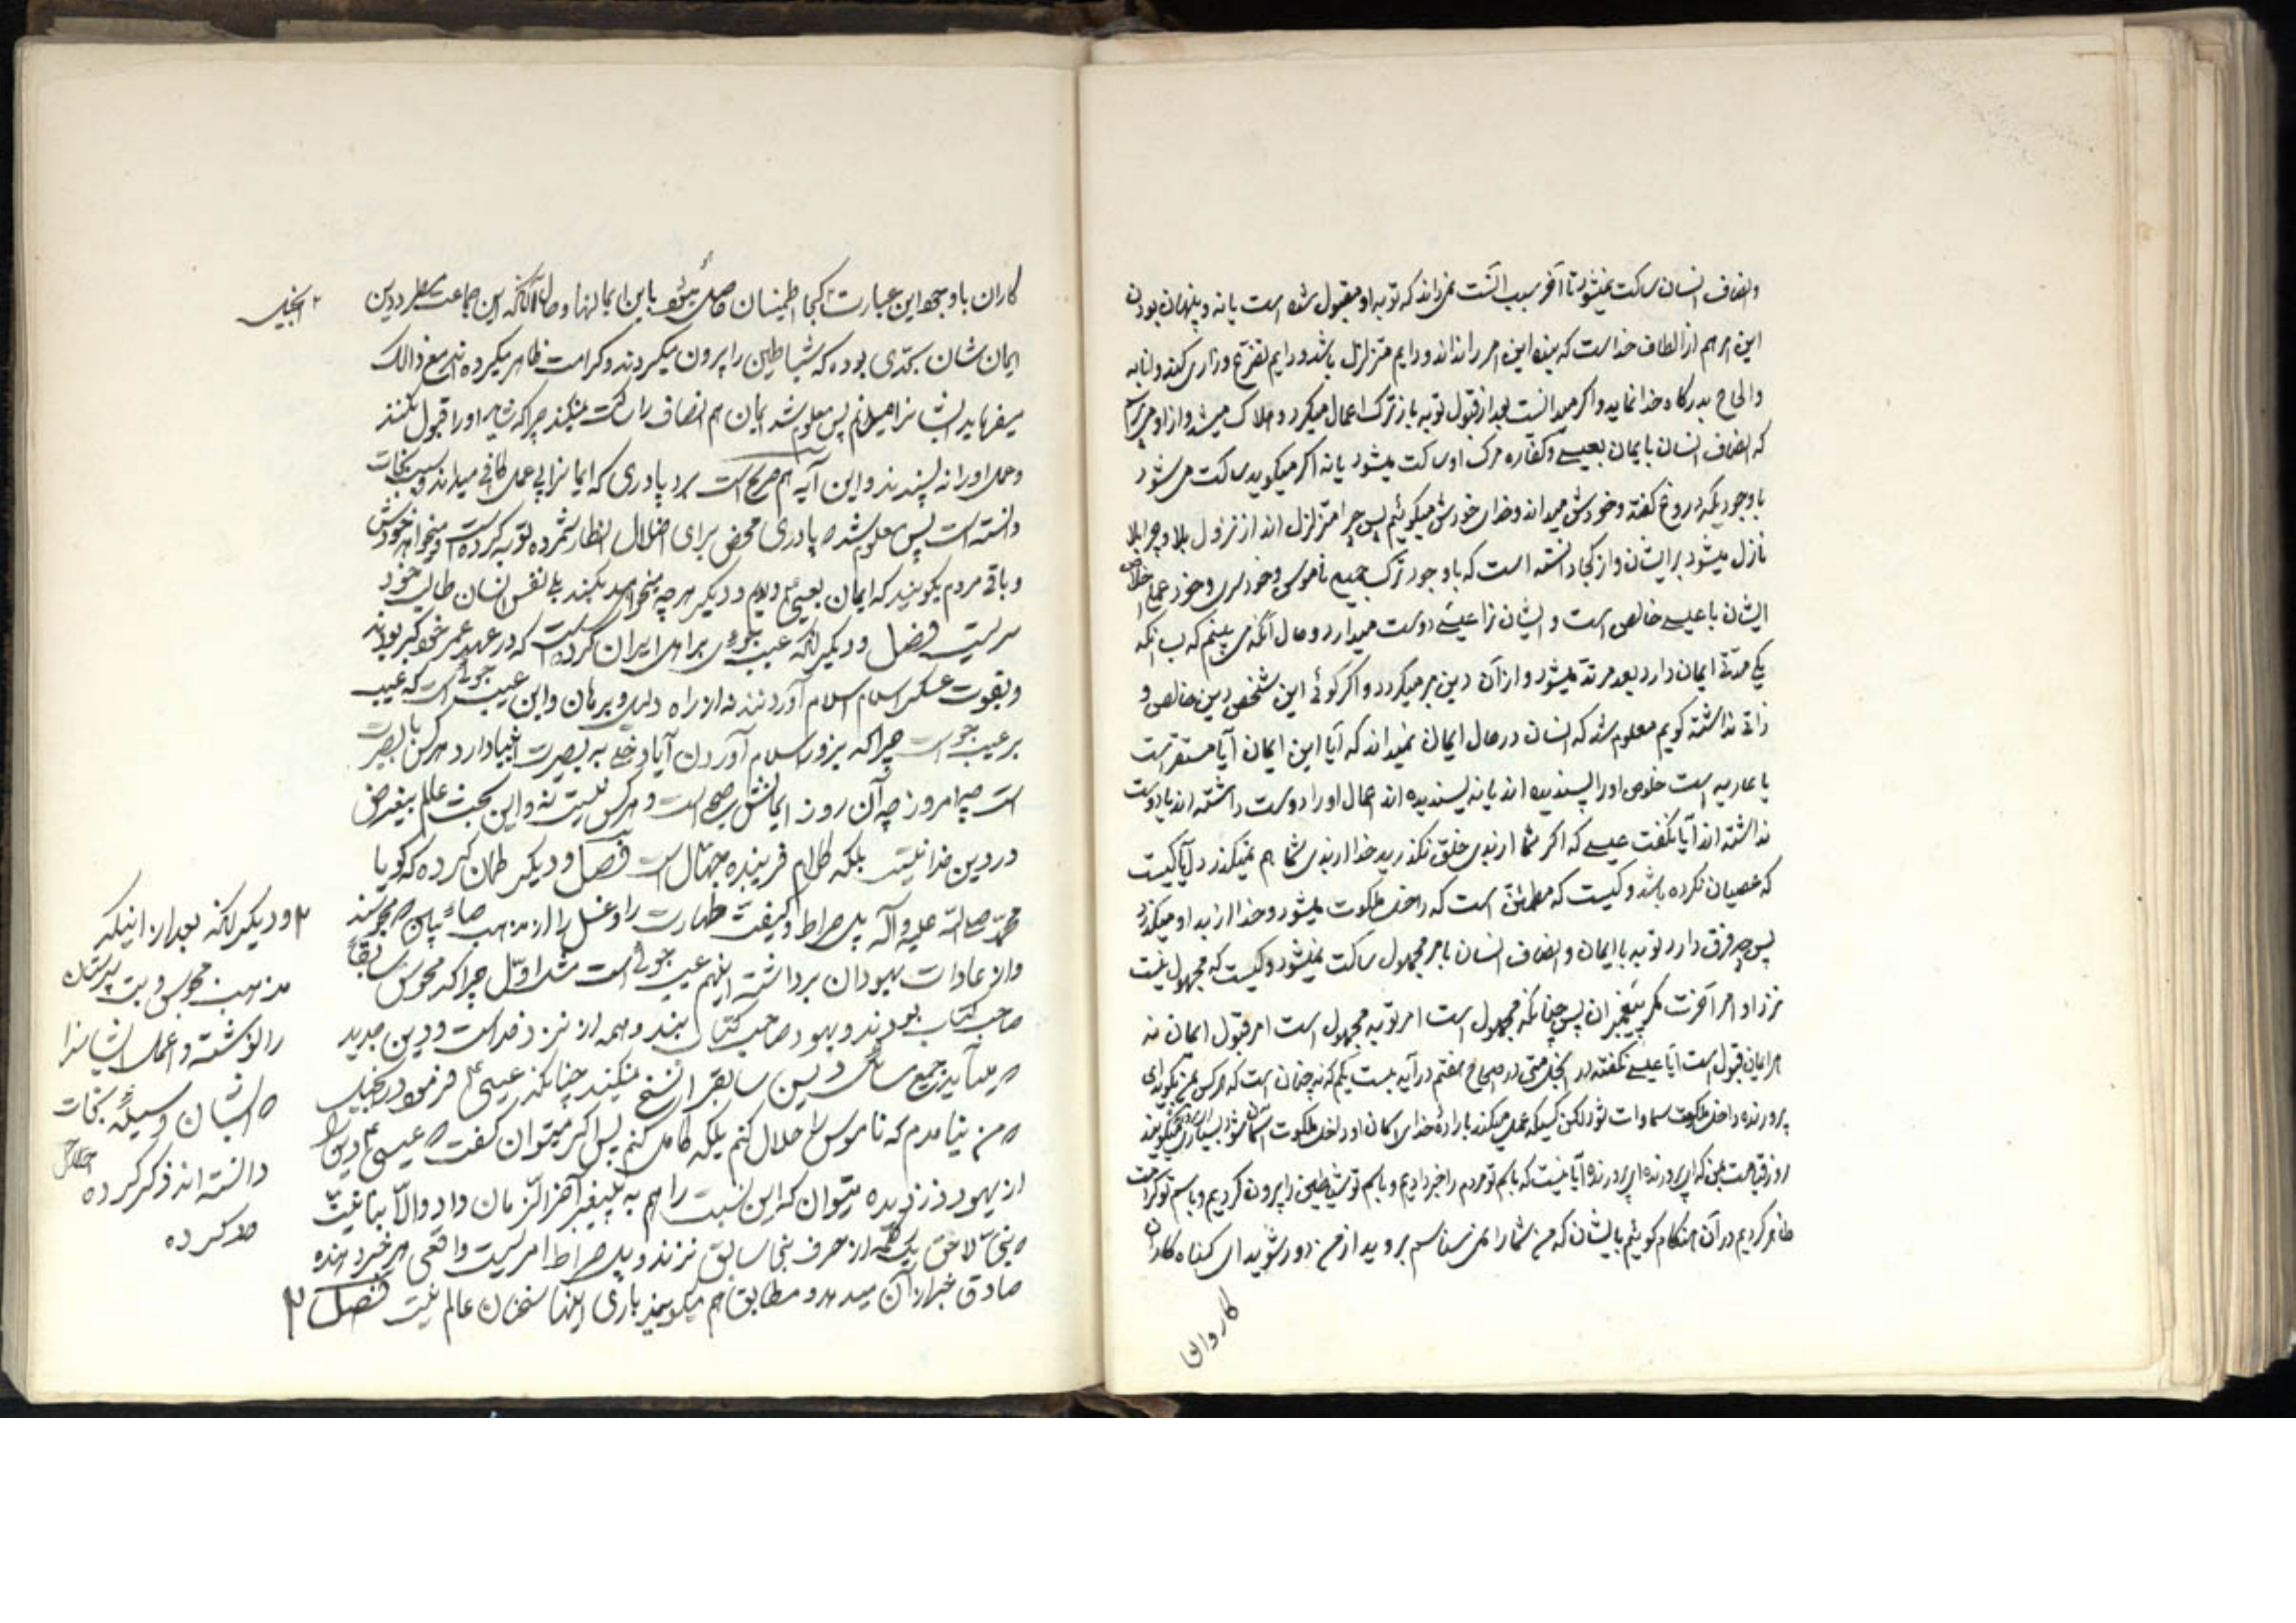 وانصاف انسان ساکت نمیشود تا آخر سبب آنست نمیداند که توبه او مقبول شده است یا نه و پنهان بودن
این امر هم از الطاف خداست که بنده این امر را نداند و دایم متزلزل باشد و دایم تضرع و زاری کند و انابه
والحاح بدرگاه خدا نماید و اگر میدانست بعد از قبول توبه باز ترک اعمال میکرد و هلاک میشد و از او
که انصاف انسان بایمان بعیسی و کفاره مرک او ساکت میشود یا نه اگر میگوید ساکت می شود
با وجودیکه دروغ گفته و خودش میداند و خدای خودش میگوئیم پس چرا متزلزل اند از نزول بلا و چرا بلا
نازل میشود بر ایشان و از کجا دانسته است که با وجود ترک جمیع ناموس و خودسری و خود عملی اخلاص
ایشان با عیسی خالص است و ایشان را عیسی دوست میدارد و حال آنکه می بینم که بسا آنکه
یکی مدتی ایمان دارد بعد مرتد میشود و از آن دین بر میگردد و اگر گوئی این شخص دین خالص و
ذاتی نداشته گویم معلوم شد که انسان در حال ایمان نمیداند که آیا این ایمان آیا مستقر است
یا عاریه است خلوص او را پسندیده اند یا نه پسندیده اند اعمال او را دوست داشته اند یا دوست
نداشته اند آیا نگفت عیسی که اگر شما از بدی خلق نگذرید خدا از بدی شما هم نمیگذرد آیا کیست
که عصیان نکرده باشد و کیست که مطمئن است که داخل ملکوت میشود و خدا از بد او میگذرد
پس چه فرق دارد توبه با ایمان و انصاف انسان بامر مجهول ساکت نمیشود و کیست که مجهول نیست
نزد او امر آخرت مگر پیغمبران پس چنانکه مجهول است امر توبه مجهول است امر قبول ایمان نه
هر ایمان قبول است آیا عیسی نگفته در انجیل متی در اصحاح هفتم در آیه بیست یکم که نه چنان است که هرکس بمن بگوید ای
پرورنده داخل ملکوت سماوات شود لکن کسیکه عمل میکند باراده خدای که آن او داخل ملکوت آسمان شود بسیاری میگویند
روز قیامت بمن که ای پرورنده ای پرورنده آیا نیست که باسم تو مردم را خبر دادیم و باسم تو شیاطین را بیرون کردیم و باسم تو کرامت
ظاهر کردیم در آن هنگام گوئیم بایشان که من شما را نمی شناسم بروید از من دور شوید ای گناه کاران
کاران با وجود این عبارت کجا اطمینان حاصل میشود باین ایمانها و حال آنکه این جماعت در دین
ایمان شان بحدی بوده که شیاطین را بیرون میکردند و کرامت ظاهر میکرده اند مع ذالک
میفرماید ایشانرا نمیدانم پس معلوم شد ایمان هم انصاف را ساکت نمیکند چرا که شاید او را قبول نکنند
وعمل او را نه پسندند و این آیه هم صریح است برد پادری که ایمانرا بی عمل کافی میداند و سبب نجات
دانسته است پس معلوم شد ه پادری محض برای اضلال انظار شمرده توبه کرده است و میخواهد خودش
و باقی مردم بگویند که ایمان بعیسی داریم و دیگر هر چه میخواهد بکند بلی نفس انسان طالب خود
سریست فصل و دیگر آنکه عیب جوئی بر اهل ایران کرده است که در عهد عمر خود گبر بودند
و بقوت عسکر اسلام اسلام آوردند نه از راه دلیل و برهان و این عیب جوئی است که عیب
بر عیب جو است چرا که بزور اسلام آوردن آیا دخلی به بصیرت اینها دارد هرکس با بصیرت
است چه امروز چه آن روز ایمانش صحیح است و هرکس نیست نه و این بحث عالم بیغرض
در دین خدا نیست بلکه کلام فریبنده جهال است فصل و دیگر طعن کرده که گویا
محمد صلی الله علیه و آله پل صراط و کیفیت طهارت را و غسل را از مذهب صائبیان ه مجوسند
و از عادات یهودان برداشته اینهم عیب جوئی است شد اول چرا که مجوس سابقا
صاحب کتاب بودند و یهود صاحب کتاب بیند و همه از نزد خداست و دین جدید
ه میآید جمیع مسائل دین سابقرا نسخ نمیکند چنانکه عیسی ع فرمود در انجیل
ه من نیامدم که ناموس را حلال کنم بلکه کامل کنم پس اگر میتوان گفت ه عیسی ع دین را
از یهود دزدیده میتوان که این نسبت را هم به پیغمبر آخر الزمان داد و الا بنا نیست
ه نبی لاحق یک کلمه از حرف نبی سابق نزند و پل صراط امریست واقعی هر خبر دهنده
صادق خبر از آن میدهد و مطابق هم میگویند باری اینها سخنان عالم نیست فصل ۲
۲ انجیل
۲ و دیگر آنکه بعد از اینکه
مذهب مجوس و بت پرستان
را نوشته و اعمال ایشانرا
ه ایشان وسیله نجات
دانسته اند ذکر کرده
کرده
کاروان